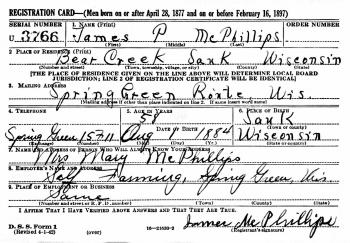 REGISTRATION CARD—(Men born on or after April 28, 1877 and on or before February 16, 1897)
SERIAL NUMBER 1. NAME (Print) ORDER NUMBER
U 3766 James P McPhillips
(First) (Middle) (Last)
2. PLACE OF RESIDENCE (Print)
Bear Creek Sauk Wisconsin
(Number and street) (Town, township, village, or city) (County) (State)
[THE PLACE OF RESIDENCE GIVEN ON THE LINE ABOVE WILL DETERMINE LOCAL BOARD
JURISDICTION; LINE 2 OF REGISTRATION CERTIFICATE WILL BE IDENTICAL]
3. MAILING ADDRESS
Spring Green Route Wis.
[Mailing address if other than place indicated on line 2. If same insert word same]
4. TELEPHONE 5. AGE IN YEARS 6. PLACE OF BIRTH
57 Sauk
DATE OF BIRTH (Town or county)
Spring Green 157-11 Aug 1884 Wisconsin
7. NAME AND ADDRESS OF PERSON WHO WILL ALWAYS KNOW YOUR ADDRESS
Mrs Mary McPhillips
8. EMPLOYER'S NAME AND ADDRESS
Self Farming, Spring Green, Wis.
9. PLACE OF EMPLOYMENT OR BUSINESS
Same
(Number and street or R. F. D. number) (Town) (County) (State)
I AFFIRM THAT I HAVE VERIFIED ABOVE ANSWERS AND THAT THEY ARE TRUE.
D. S. S. Form 1
(Revised 4-1-42) (over) 16—21630-2 James McPhillips
(Registrant's signature)